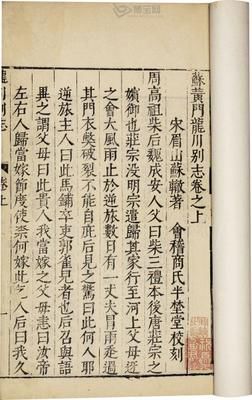 蘇黃門龍川别志卷之上
宋眉山蘇轍著 會稽商氏半埜堂校刻
周高祖柴后魏成安人父曰柴三禮本後唐莊宗之
嬪御也莊宗没明宗遣歸其家行至河上父母迓
之會大風雨止於逆旅數日有一丈夫冒雨走過
其門衣弊破裂不能自庇后見之驚曰此何人耶
逆旅主人曰此馬鋪卒吏郭雀兒者也后召與語
異之謂父母曰此貴人我當嫁之父母恚曰汝帝
左右人歸當嫁節度使奈何嫁此乞人后曰我久
龍川别志
卷上